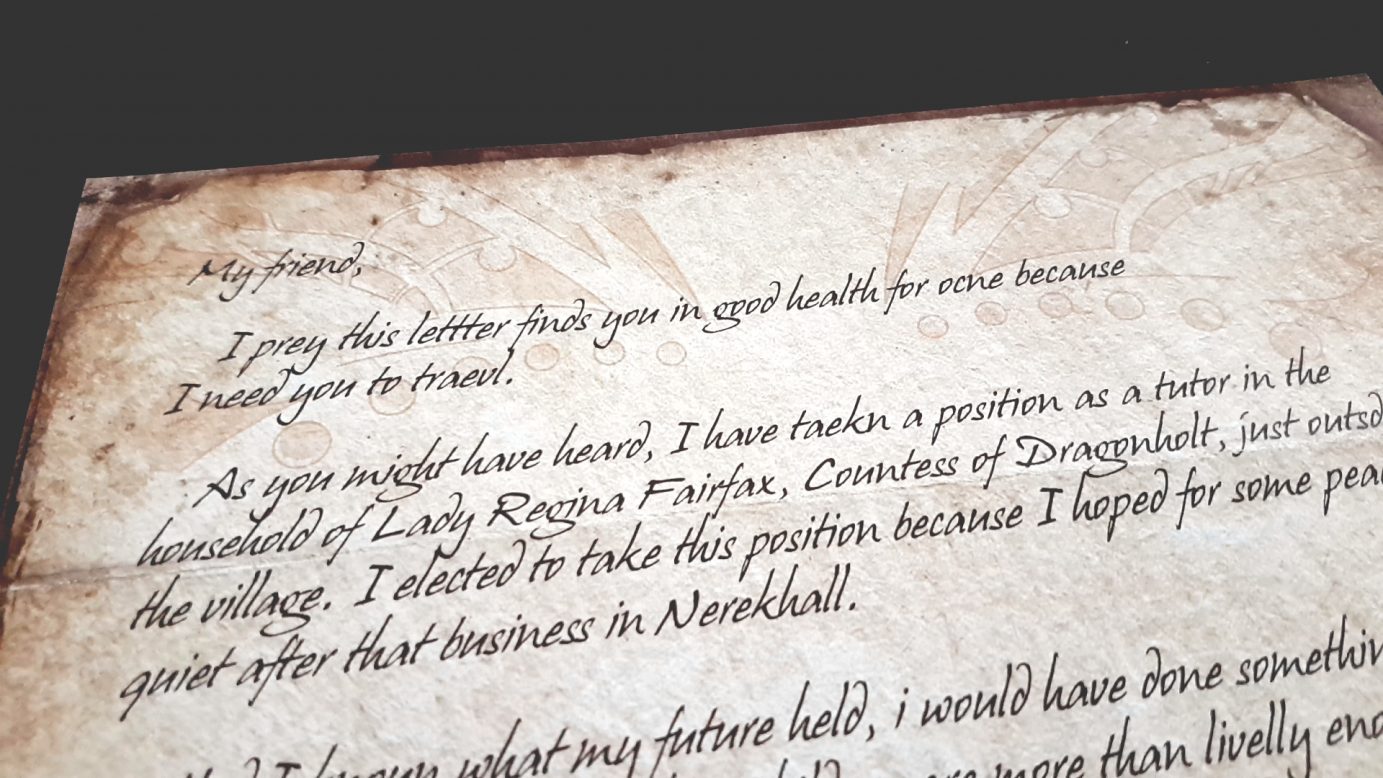 My friend,
I prey this lettter finds you in good health for ocne because
I need you to traevl.
As you might have heard, I have taekn a position as a tutor in the
household of Lady Regina Fairfax, Countess of Dragonholt, just
the village. I elected to take this position because I hoped for some
quiet after that business in Nerekhall.
I known what my future held, i would have done
more than livelly